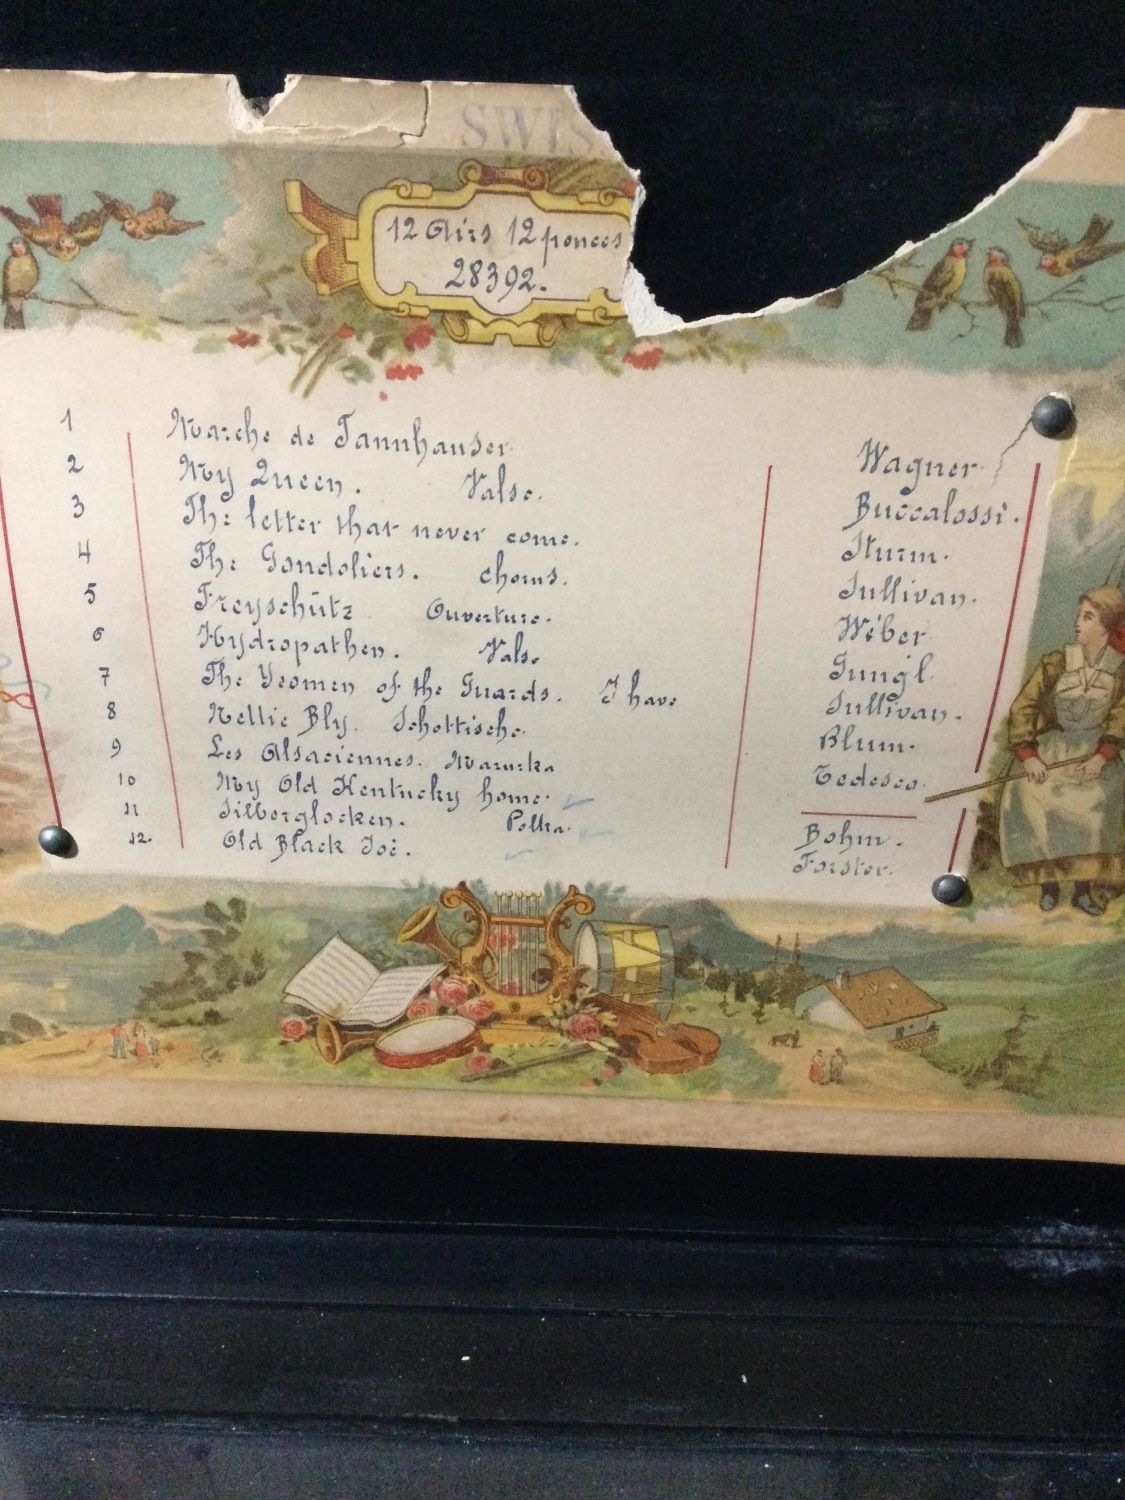 SWIS
12 Airs 12 pouces
28392.
1 Marche de Tannhauser Wagner
2 My Queen. Valse. Buccalossi.
3 The letter that never come. Sturm.
4 The Gondoliers. chorus. Sullivan.
5 Freyschütz Ouverture. Wéber
6 Hydropathen. Valse Gungl.
7 The Yeomen of the Guards. I have Sullivan.
8 Nellie Bly. Schottische. Blum.
9 Les Alsaciennes. Mazurka Tedesco.
10 My Old Kentucky home.
11 Silberglocken. Polka. Bohm.
12. Old Black Joë. Forster.